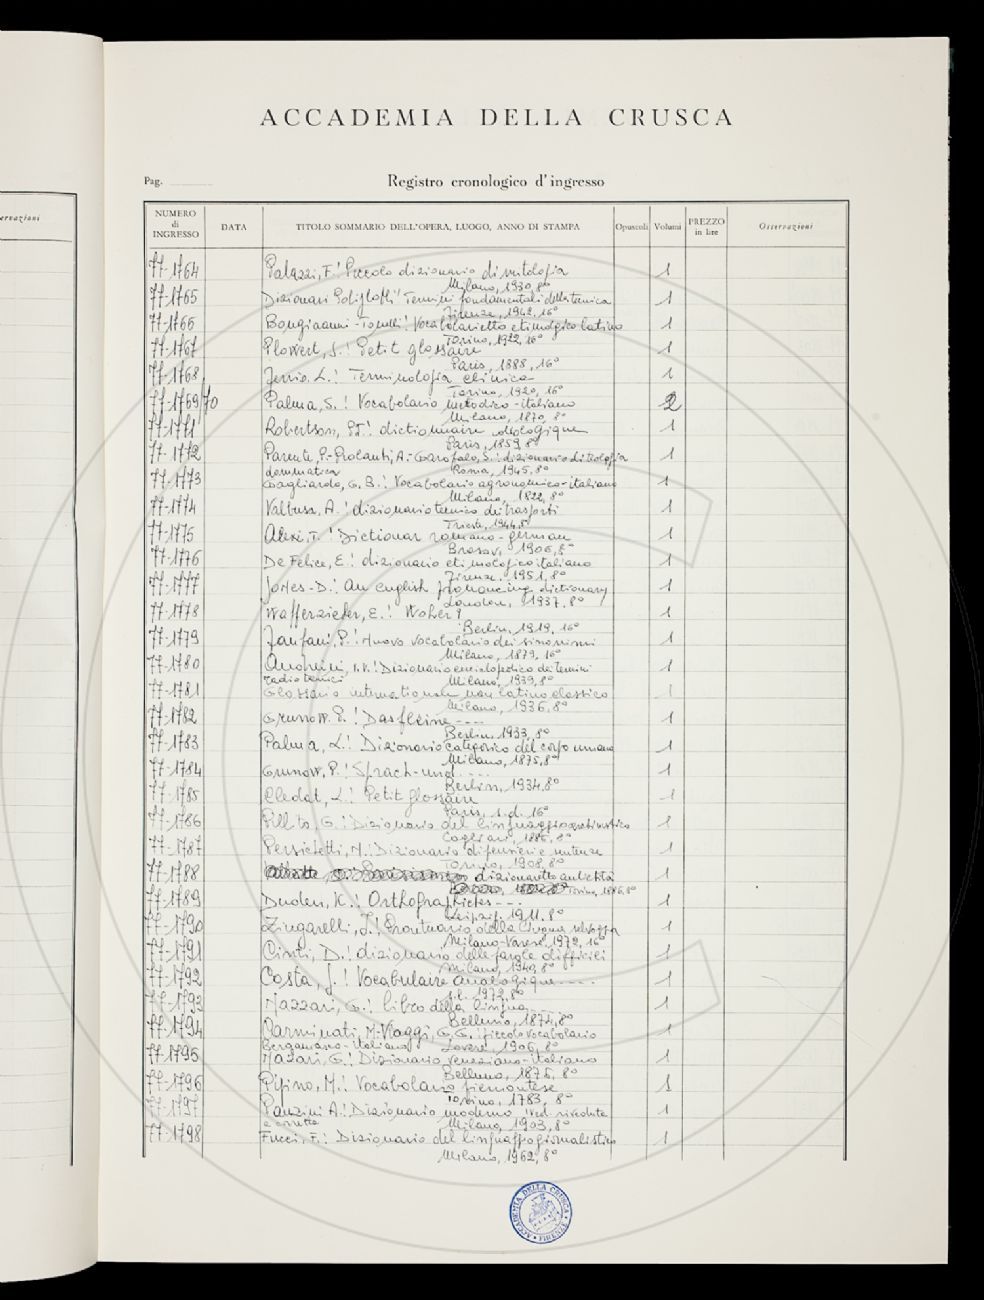 ervazioni
ACCADEMIA DELLA CRUSCA
Pag.
Registro cronologico d'ingresso
NUMERO di INGRESSO DATA TITOLO SOMMARIO DELL'OPERA, LUOGO, ANNO DI STAMPA Opuscoli Volumi PREZZO in lire Osservazioni
77-1764 Palazzi, F.: Piccolo dizionario di mitologia 1
Milano, 1930, 8°
77-1765 Dizionari Poliglotti: Termini fondamentali della tecnica 1
Firenze, 1942, 16°
77-1766 Bongioanni - : Vocabolarietto etimologico latino 1
Torino, 1922, 16°
77-1767 Plowert, J.: Petit glossaire 1
Paris, 1888, 16°
77-1768 Ferrio, L.: Terminologia clinica 1
Torino, 1920, 16°
77-1769/70 Palma, S.: Vocabolario metodico-italiano 2
Milano, 1870, 8°
77-1771 Robertson, : dictionnaire idéologique 1
Paris, 1859, 8°
77-1772 Parente, P.-Piolanti, A.-Garofalo, S.: dizionario di teologia 1
dommatica Roma, 1945, 8°
77-1773 Gagliardo, G. B.: Vocabolario agronomico-italiano 1
Milano, 1822, 8°
77-1774 Valbusa, A.: dizionario tecnico dei trasporti 1
Trieste, 1944, 8°
77-1775 Alexi, T.: Dictionar romano-german 1
Brasov, 1906, 8°
77-1776 De Felice, E.: dizionario etimologico italiano 1
Firenze, 1951, 8°
77-1777 Jones-D.: An english pronouncing dictionary 1
London, 1937, 8°
77-1778 Wasserzieher, E.: Woher? 1
Berlin, 1919, 16°
77-1779 Fanfani, P.: nuovo vocabolario dei sinonimi 1
Milano, 1879, 16°
77-1780 : Dizionario enciclopedico dei termini 1
radiotecnici Milano, 1939, 8°
77-1781 Glossario internationale non latino classico 1
Milano, 1936, 8°
77-1782 Grunow, P.: Das kleine ---- 1
Berlin, 1933, 8°
77-1783 Palma, L.: Dizionario categorico del corpo umano 1
Milano, 1875, 8°
77-1784 Grunow, P.: Sprach-und .... 1
Berlin, 1934, 8°
77-1785 Cledat, L.: Petit glossaire 1
Paris, s.d. 16°
77-1786 Pillito, G.: Dizionario del linguaggio 1
Cagliari, 1886, 8°
77-1787 Persichetti, N.: Dizionario di pensieri e sentenze 1
Torino, 1908, 8°
77-1788 dizionarietto antichità 1
Torino, 1886, 8°
77-1789 Duden, K.: Orthographisches --- 1
Leipzig, 1911, 8°
77-1790 Zingarelli, I.: Prontuario della lingua 1
Milano-Varese, 1972, 16°
77-1791 Cinti, D.: dizionario delle parole difficili 1
Milano, 1940, 8°
77-1792 Costa, J.: Vocabulaire analogique .... 1
s.l. 1972, 8°
77-1793 Nazzari, G.: libro della lingua 1
Belluno, 1874, 8°
77-1794 Carminati, M.-Viaggi, G. G.: piccolo vocabolario 1
Bergamasco-italiano Lovere, 1906, 8°
77-1795 Nazari, G.: Dizionario veneziano-italiano 1
Belluno, 1876, 8°
77-1796 Pipino, M.: Vocabolario piemontese 1
Torino, 1783, 8°
77-1797 Panzini A.: Dizionario moderno 1 ed. riveduta 1
e corretta Milano, 1903, 8°
77-1798 Fucci, F.: Dizionario del linguaggio giornalistico 1
Milano, 1962, 8°
ACCADEMIA DELLA CRUSCA • FIRENZE •